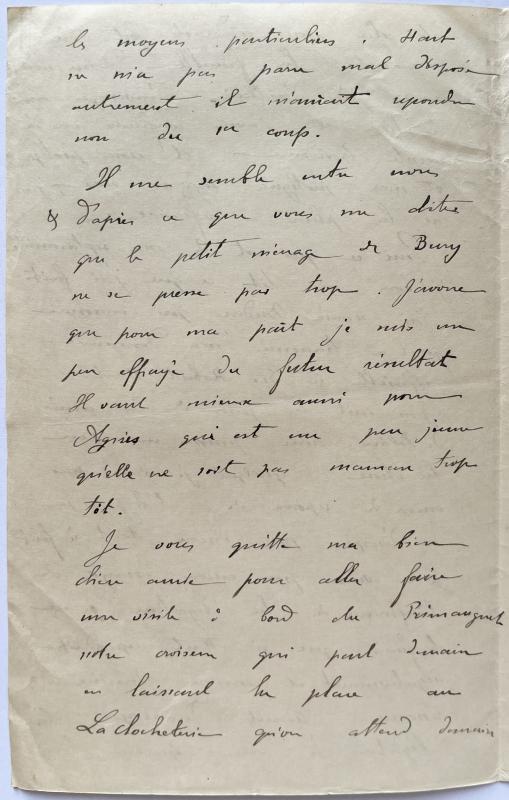 les moyens particuliers. Haut
ne m'a pas paru mal disposé
autrement il m'aurait répondu
non du 1er coup.
Il me semble entre nous
& d'après ce que vous me dites
que le petit ménage de Bury
ne se presse pas trop. J'avoue
que pour ma part je suis un
peu effrayé du futur résultat
Il vaut mieux aussi pour
Agnès qui est un peu jeune
qu'elle ne soit pas maman trop
tôt.
Je vous quitte ma bien
chère amie pour aller faire
une visite à bord du Primauguet
notre croiseur qui part demain
en laissant la place au
La Clocheterie qu'on attend demain